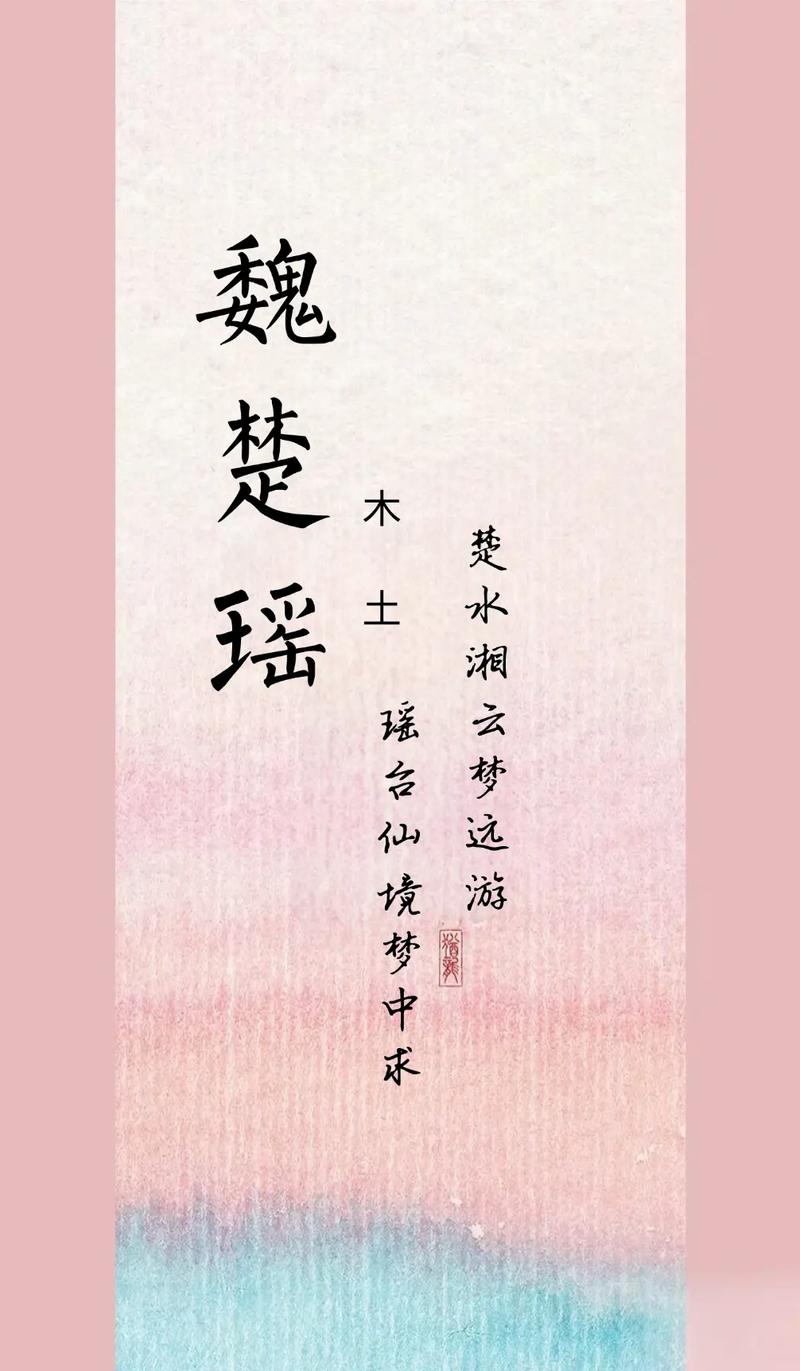 魏楚瑶
木土
楚水湘云梦远游
瑶台仙境梦中求